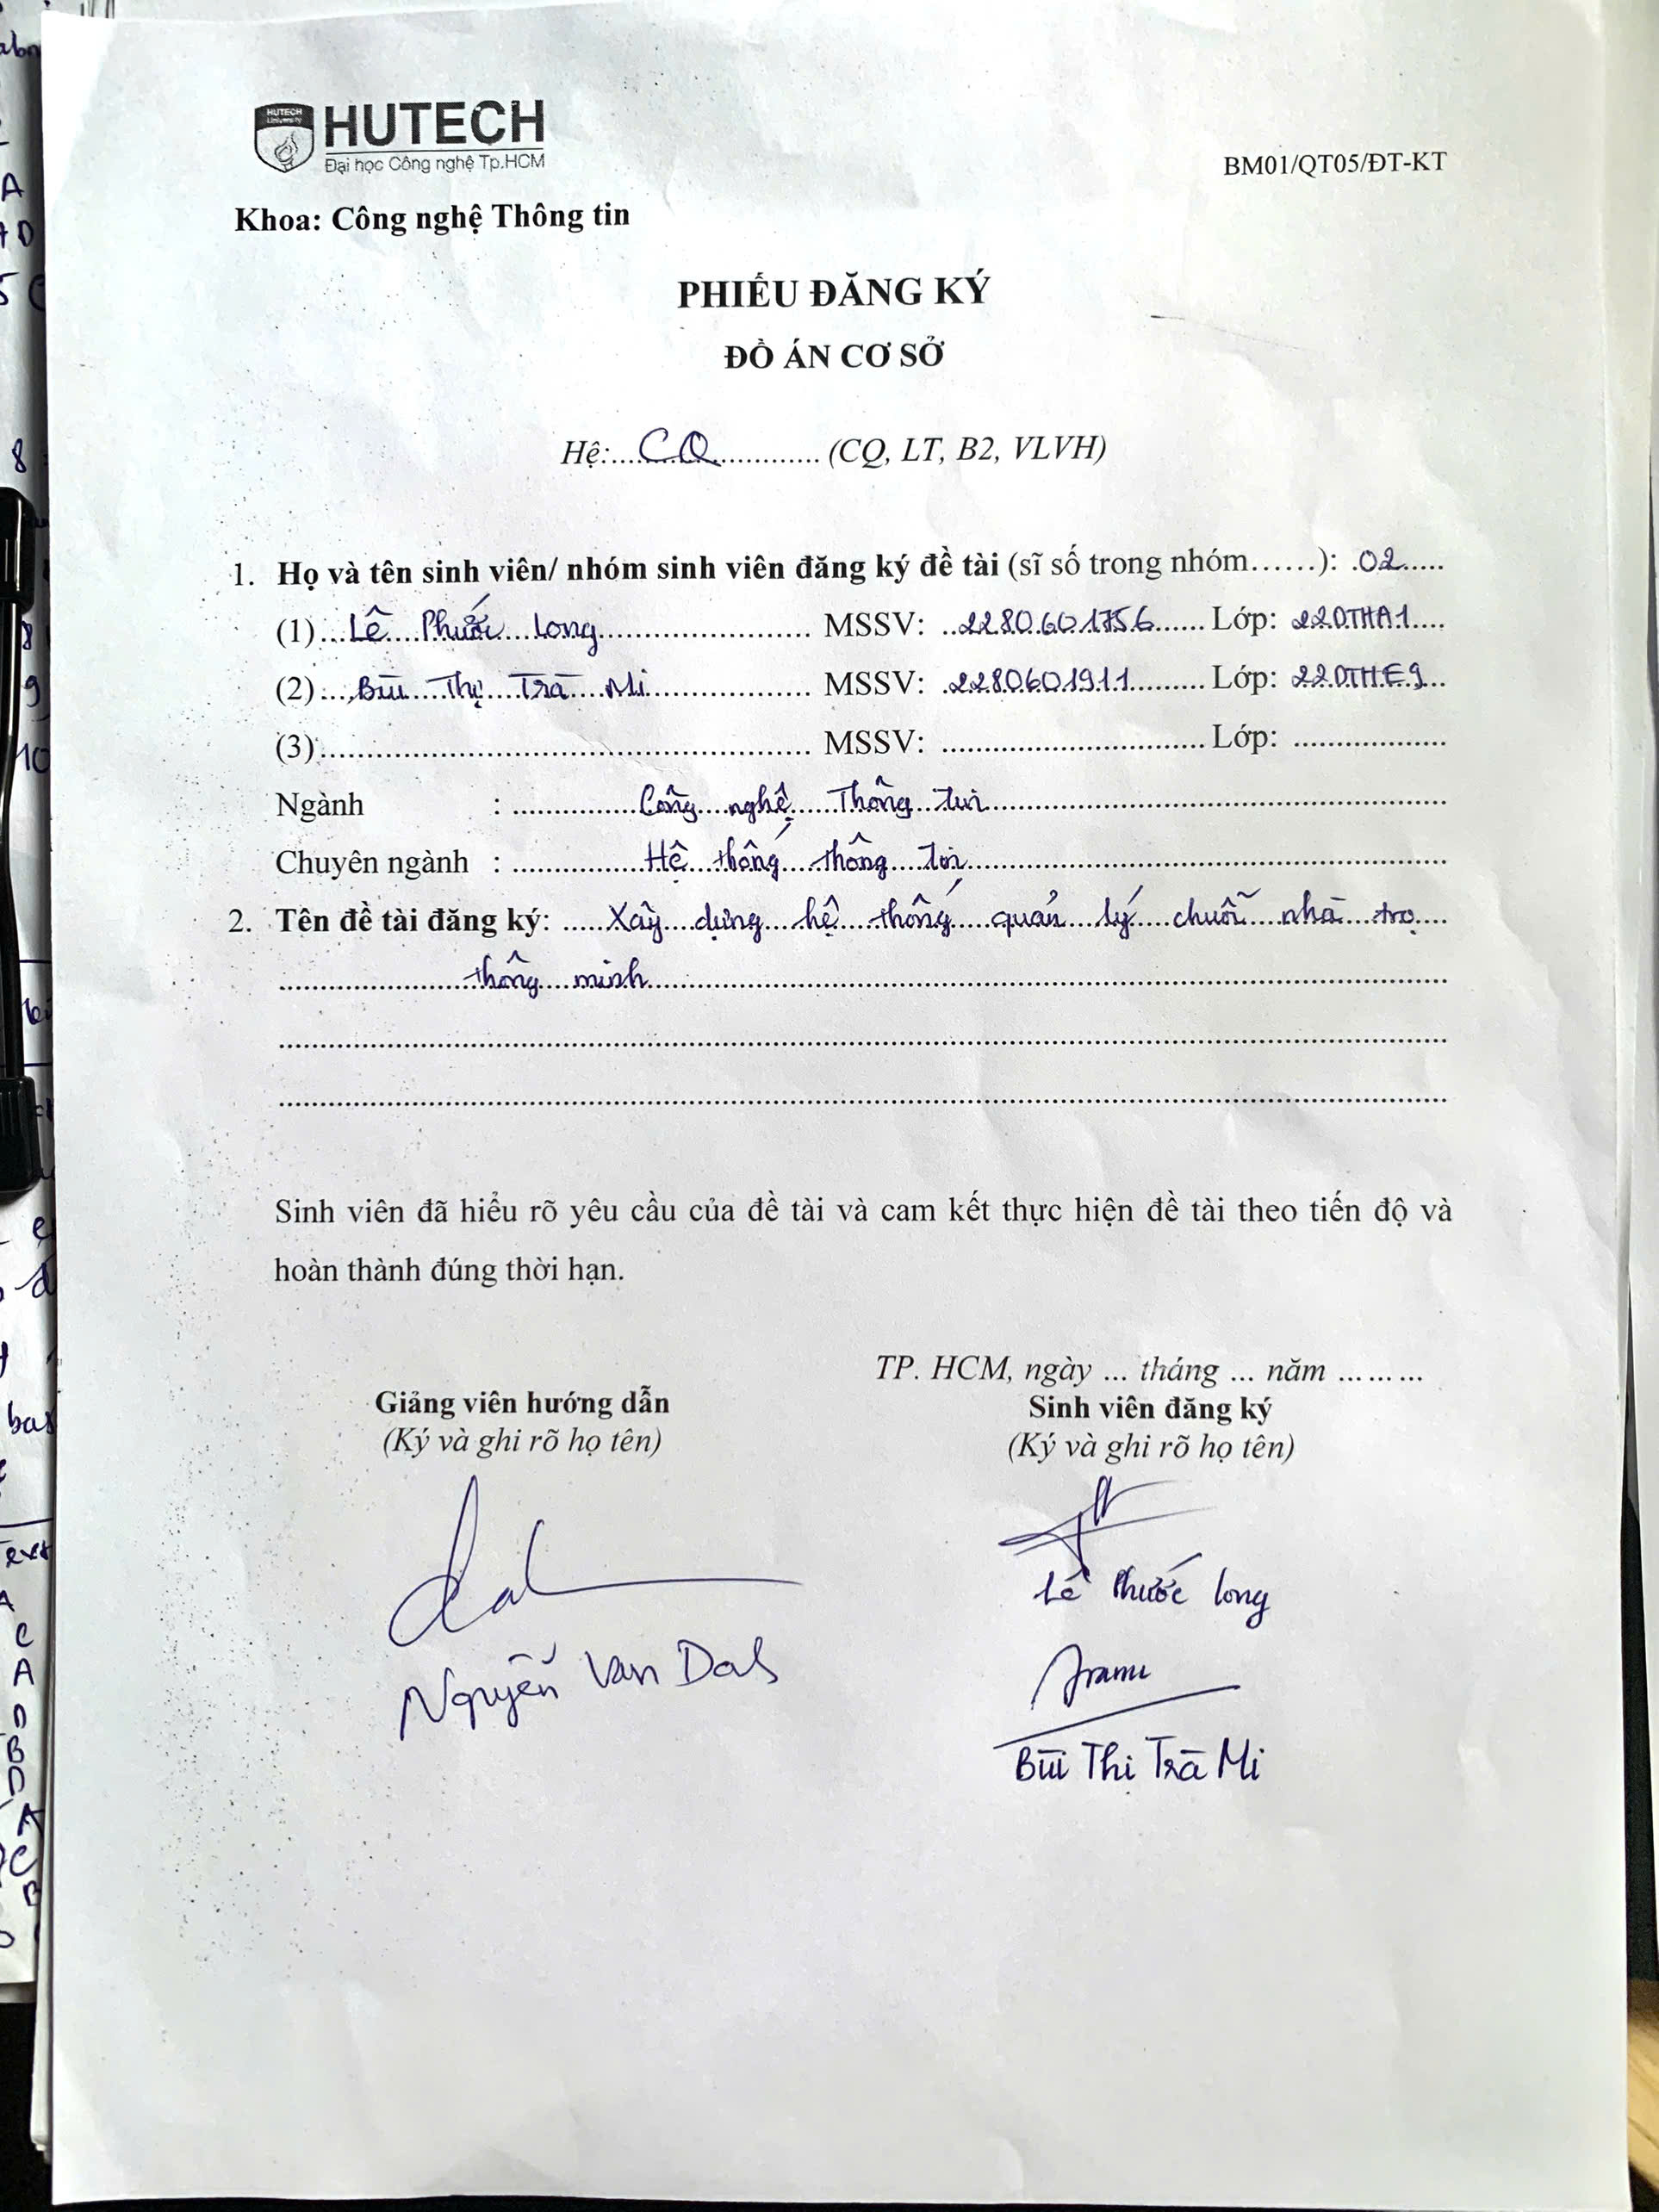 HUTECH
University
HUTECH
Đại học Công nghệ Tp.HCM
BM01/QT05/ĐT-KT
Khoa: Công nghệ Thông tin
PHIẾU ĐĂNG KÝ
ĐỒ ÁN CƠ SỞ
Hệ:....CQ............... (CQ, LT, B2, VLVH)
1. Họ và tên sinh viên/ nhóm sinh viên đăng ký đề tài (sĩ số trong nhóm……): .02.....
(1)...Lê....Phước....Long............................ MSSV: ..2280601756...... Lớp: 22DTHA1....
(2)....Bùi....Thị....Trà....Mi..................... MSSV: .2280601911.......... Lớp: 22DTHE9...
(3)............................................................. MSSV: .................................. Lớp: ....................
Ngành : ................Công....nghệ....Thông....tin.............................................................
Chuyên ngành : .................Hệ....thống....thông....tin.............................................................
2. Tên đề tài đăng ký: .....Xây....dựng....hệ....thống....quản....lý....chuỗi....nhà....trọ....
........................thông....minh...........................................................................................
.............................................................................................................................................
.............................................................................................................................................
Sinh viên đã hiểu rõ yêu cầu của đề tài và cam kết thực hiện đề tài theo tiến độ và
hoàn thành đúng thời hạn.
TP. HCM, ngày ... tháng ... năm ... ... ...
Giảng viên hướng dẫn
(Ký và ghi rõ họ tên)
Sinh viên đăng ký
(Ký và ghi rõ họ tên)
Nguyễn Van
Lê Phước Long
Bùi Thị Trà Mi